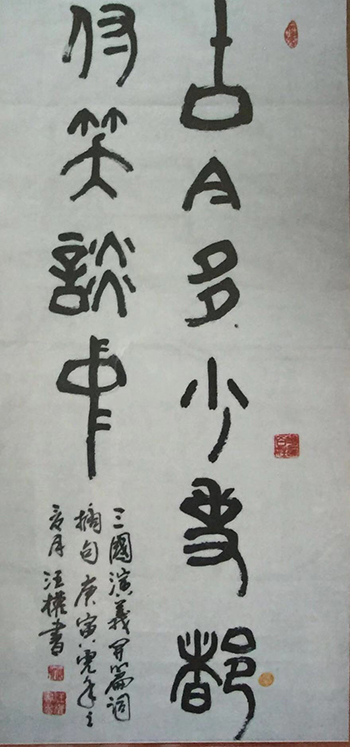 古今多少事都
付笑談中
三國演義開篇詞
摘句庚寅虎年之
月汪權書